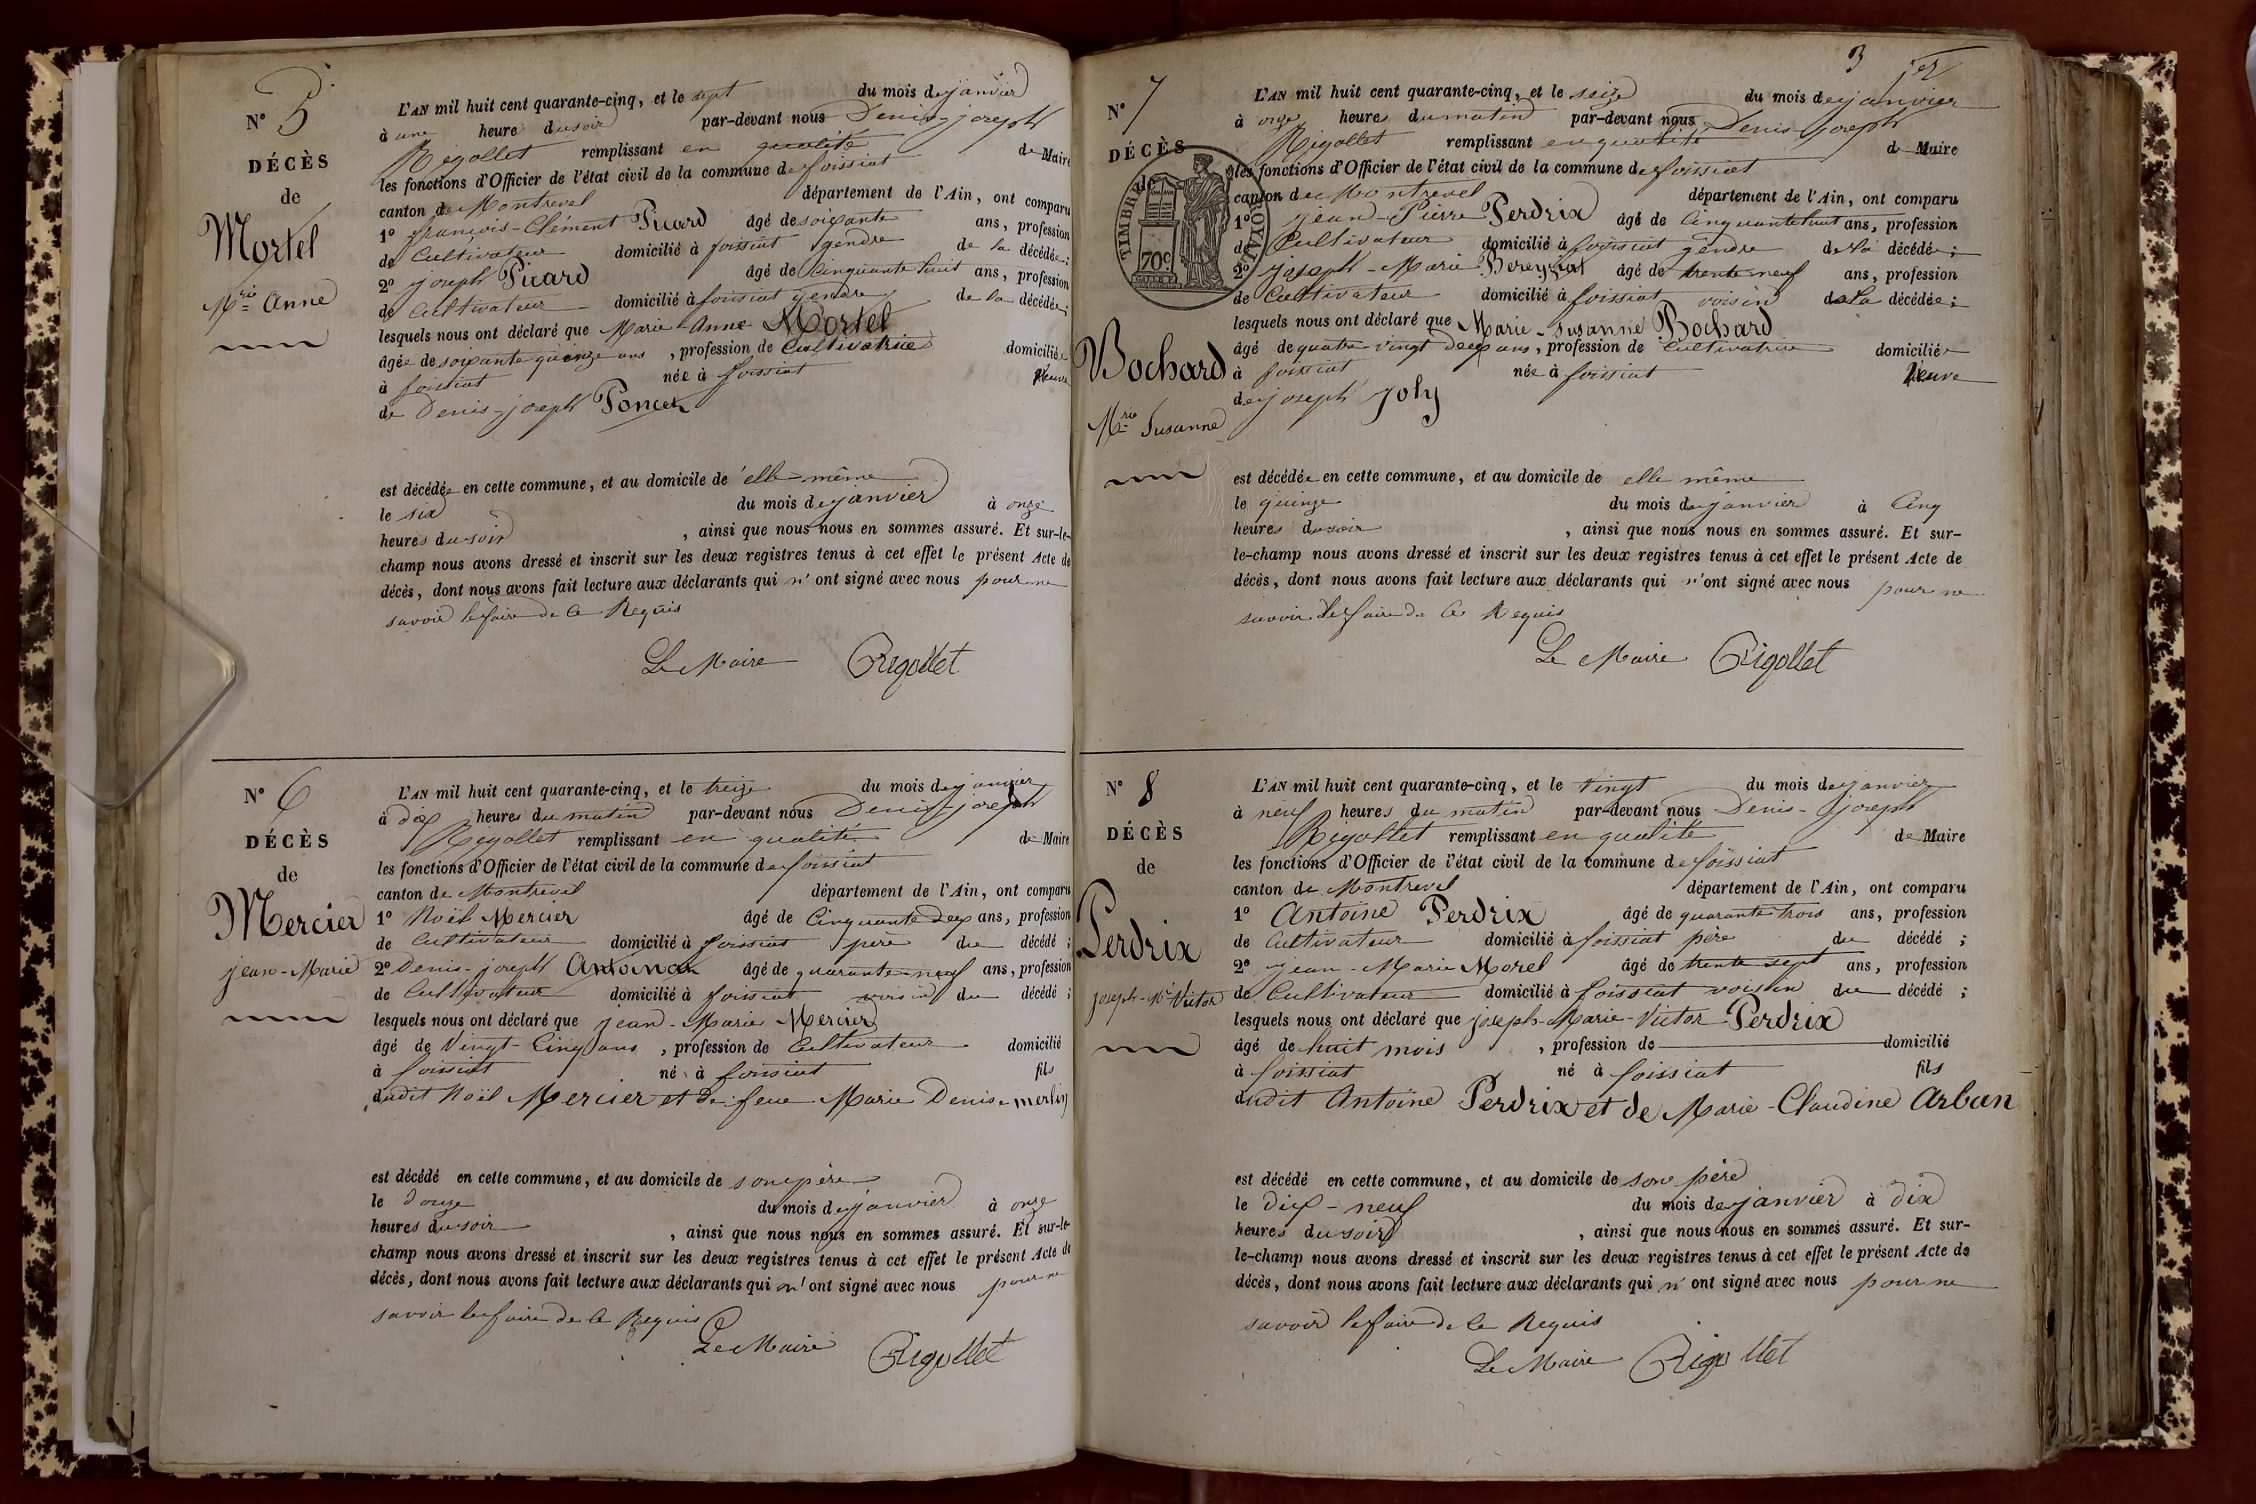 N° 5
DÉCÈS
de
Mortel
Mrie Anne
L'AN mil huit cent quarante-cinq, et le sept du mois de janvier
à une heure du soir par-devant nous Denis-joseph
Rigollet remplissant en qualité de Maire
les fonctions d'Officier de l'état civil de la commune de foissiat
canton de Montrevel département de l'Ain, ont comparu
1° françois-Clément Picard âgé de soixante ans, profession
de Cultivateur domicilié à foissiat gendre de la décédée;
2° joseph Picard âgé de Cinquante huit ans, profession
de Cultivateur domicilié à foissiat gendre de la décédée;
lesquels nous ont déclaré que Marie-Anne Mortel
âgée de soixante quinze ans, profession de Cultivatrice domiciliée
à foissiat née à foissiat Veuve
de Denis-joseph Poncet
est décédée en cette commune, et au domicile de elle même
le six du mois de janvier à onze
heures du soir, ainsi que nous nous en sommes assuré. Et sur-le-
champ nous avons dressé et inscrit sur les deux registres tenus à cet effet le présent Acte de
décès, dont nous avons fait lecture aux déclarants qui n'ont signé avec nous pour ne
savoir le faire de ce Requis
Le Maire Rigollet
N° 6
DÉCÈS
de
Mercier
jean-Marie
L'AN mil huit cent quarante-cinq, et le treize du mois de janvier
à dix heures du matin par-devant nous Denis-joseph
Rigollet remplissant en qualité de Maire
les fonctions d'Officier de l'état civil de la commune de foissiat
canton de Montrevel département de l'Ain, ont comparu
1° Noël Mercier âgé de Cinquante dex ans, profession
de Cultivateur domicilié à foissiat père du décédé;
2° Denis-joseph âgé de quarante-neuf ans, profession
de Cultivateur domicilié à foissiat voisin du décédé;
lesquels nous ont déclaré que jean-Marie Mercier
âgé de Vingt-Cinq ans, profession de Cultivateur domicilié
à foissiat né à foissiat fils
dudit Noël Mercier et de feue Marie Denise merlin
est décédé en cette commune, et au domicile de son père
le douze du mois de janvier à onze
heures du soir, ainsi que nous nous en sommes assuré. Et sur-le-
champ nous avons dressé et inscrit sur les deux registres tenus à cet effet le présent Acte de
décès, dont nous avons fait lecture aux déclarants qui n'ont signé avec nous pour ne
savoir le faire de ce Requis
Le Maire Rigollet
3
N° 7
DÉCÈS
de
TIMBRE ROYAL
70c
Bochard
Mrie Susanne
L'AN mil huit cent quarante-cinq, et le seize du mois de janvier
à onze heures du matin par-devant nous Denis joseph
Rigollet remplissant en qualité de Maire
les fonctions d'Officier de l'état civil de la commune de foissiat
canton de Montrevel département de l'Ain, ont comparu
1° jean-Pierre Perdrix âgé de Cinquante huit ans, profession
de Cultivateur domicilié à foissiat gendre de la décédée;
2° joseph-Marie Bereyziat âgé de trente neuf ans, profession
de Cultivateur domicilié à foissiat voisin de la décédée;
lesquels nous ont déclaré que Marie-Susanne Bochard
âgé de quatre vingt deex ans, profession de Cultivatrice domiciliée
à foissiat née à foissiat Veuve
de joseph joly
est décédée en cette commune, et au domicile de elle même
le quinze du mois de janvier à Cinq
heures du soir, ainsi que nous nous en sommes assuré. Et sur-
le-champ nous avons dressé et inscrit sur les deux registres tenus à cet effet le présent Acte de
décès, dont nous avons fait lecture aux déclarants qui n'ont signé avec nous pour ne
savoir le faire de ce Requis
Le Maire Rigollet
N° 8
DÉCÈS
de
Perdrix
joseph-Mie Victor
L'AN mil huit cent quarante-cinq, et le vingt du mois de janvier
à neuf heures du matin par-devant nous Denis-joseph
Rigollet remplissant en qualité de Maire
les fonctions d'Officier de l'état civil de la commune de foissiat
canton de Montrevel département de l'Ain, ont comparu
1° Antoine Perdrix âgé de quarante trois ans, profession
de Cultivateur domicilié à foissiat père du décédé;
2° jean-Marie Morel âgé de trente sept ans, profession
de Cultivateur domicilié à foissiat voisin du décédé;
lesquels nous ont déclaré que joseph-Marie-Victor Perdrix
âgé de huit mois, profession de domicilié
à foissiat né à foissiat fils
dudit Antoine Perdrix et de Marie-Claudine Arban
est décédé en cette commune, et au domicile de son père
le dix-neuf du mois de janvier à dix
heures du soir, ainsi que nous nous en sommes assuré. Et sur-
le-champ nous avons dressé et inscrit sur les deux registres tenus à cet effet le présent Acte de
décès, dont nous avons fait lecture aux déclarants qui n'ont signé avec nous pour ne
savoir le faire de ce Requis
Le Maire Rigollet